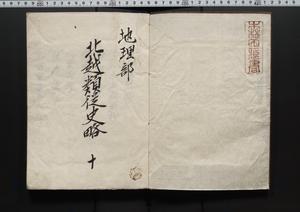 地理部
北越類従史略 十